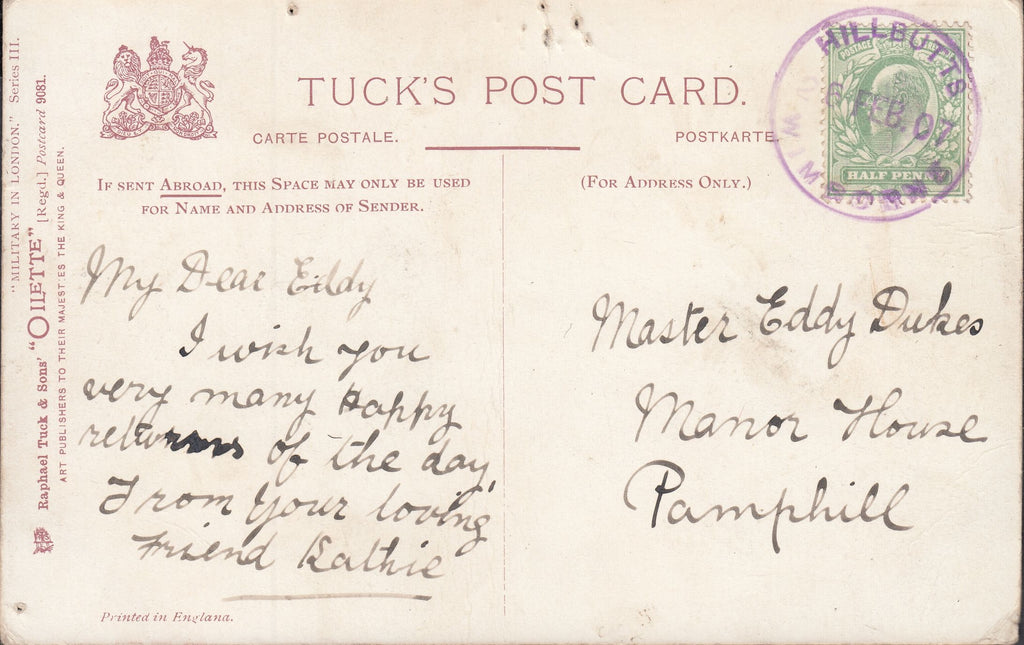 "MILITARY IN LONDON." Series III.
Raphael Tuck & Sons' "OILETTE" [Regd.] Postcard 9081.
ART PUBLISHERS TO THEIR MAJESTIES THE KING & QUEEN.
TUCK'S POST CARD.
CARTE POSTALE.
POSTKARTE.
IF SENT ABROAD, THIS SPACE MAY ONLY BE USED
FOR NAME AND ADDRESS OF SENDER.
(FOR ADDRESS ONLY.)
HILLBUTTS
FEB. 07
WIMBORNE
POSTAGE
HALF PENNY
My Dear Eddy
I wish you
very many Happy
returns of the day,
From your loving
Friend Kathie
Master Eddy Dukes
Manor House
Pamphill
Printed in England.